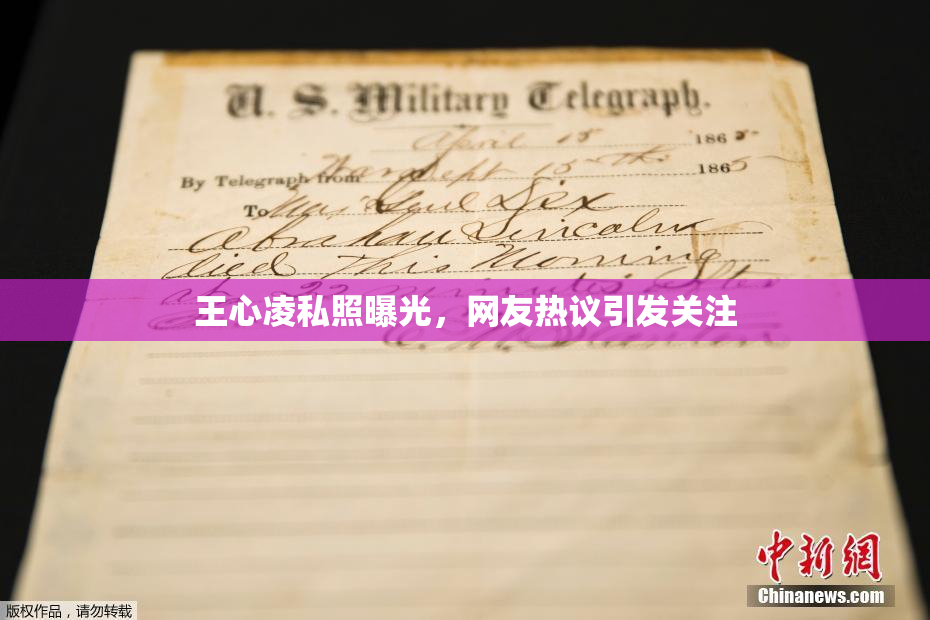 U. S. Military Telegraph.
April 15 1865
By Telegraph from War Dept 15th 1865
To Maj Genl Dix
Abraham Lincoln
died This Morning
at 22 minutes after
王心凌私照曝光，网友热议引发关注
中新网
Chinanews.com
版权作品，请勿转载